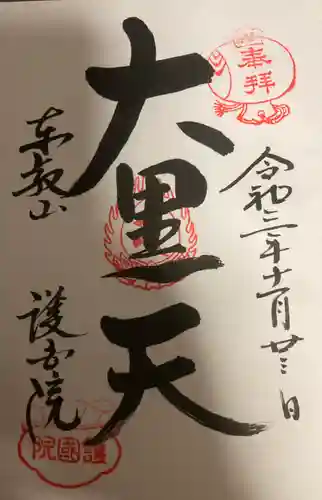 奉拝
令和三年十一月廿三日
大黒天
東叡山
護国院
護國院